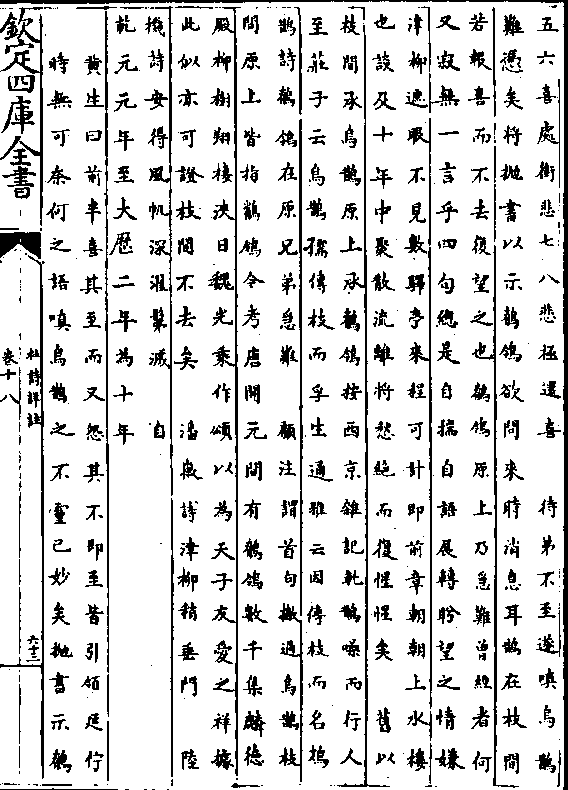 五六喜處銜悲七八悲極還喜　待弟不至遂嗔烏鵲
難憑矣將抛書以示鶺鴒欲問來時消息耳鵲在枝間
若報喜而不去復望之也鶺鴒原上乃急難曾經者何
又寂無一言乎四句總是自揣自語展轉盼望之情嫌
津柳遮眼不見數驛亭來程可計即前章朝朝上水樓
也談及十年中聚散流離將愁絶而復惺惺矣　舊以
枝間承烏鵲原上承鶺鴒按西京雜記乾鵲噪而行人
至莊子云烏鵲孺傳枝而孚生通雅云因傳枝而名鵲
鵲詩鶺鴒在原兄弟急難　顧注謂首句撇過烏鵲枝
間原上皆指鶺鴒今考唐開元間有鶺鴒數千集麟德
殿柳樹翔棲浹日魏光乗作頌以為天子友愛之祥據
此似亦可證枝間不去矣　潘岳詩津柳稍垂門　陸
機詩安得風帆深濯鬢滅　自
乾元元年至大厯二年為十年
黄生曰前半喜其至而又怨其不即至昔引領延佇
時無可奈何之語嗔烏鵲之不靈已妙矣抛書示鶺
欽定四庫全書
杜詩詳註
卷十八
六十二